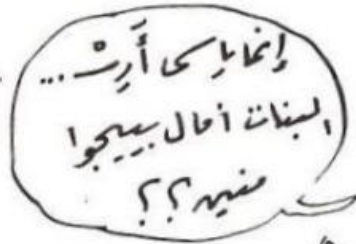 إنما ياسى أَرِتْ ...
البنات أمال بييجوا
منين؟؟